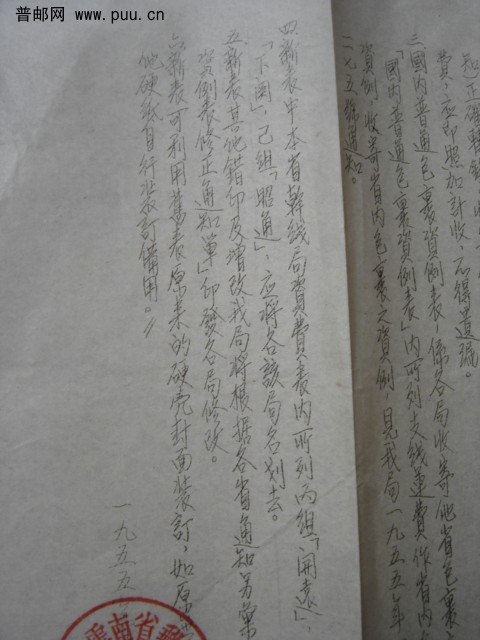 普邮网
www.puu.cn
费,应即照加計收,不得遺號。
三國内普通包裹資例表,係各局收寄他省包裹
「國内普通包裹資例表」内所列支线運費作省内
資例,收寄省内包裹之資例,見我局一九五五年
二七五號通知。
四新表中本省幹线局資費表内所列丙組「開遠」,
「下關」,己組「昭通」,应将各該局名划去。
五新表其他錯印及增改我局将根据各省通知另彙
資例表修正通知單」印發各局修改。
六新表可利用舊表原来的硬壳封面装訂,如原
他硬纸自行装訂備用。//
一九五五
雲南省郵